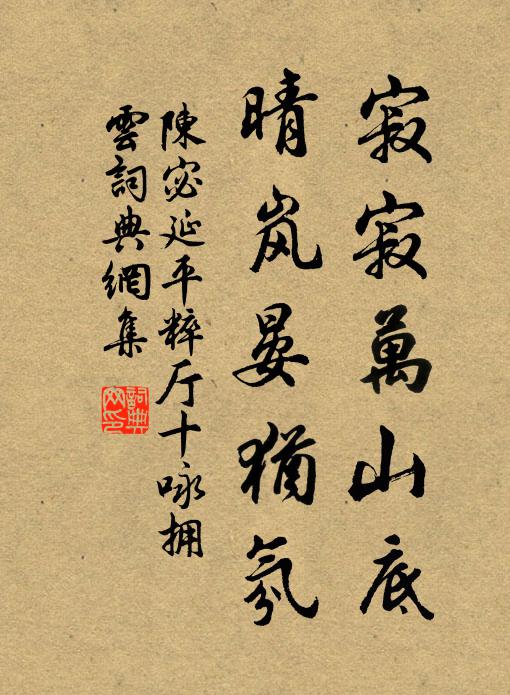 寂寂萬山底
晴岚晏猶氛
陳宓延平粹厅十咏拥
雲詞典網集
詞典
网印